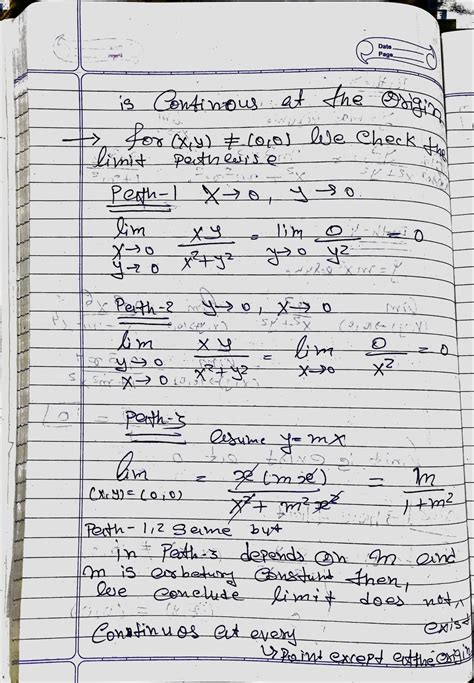 Date
Page
is Continous at the Origin
→ for (x,y) ≠ (0,0) We check the
limit pathwise
Path-1 x→0, y→0
lim x→0 y→0 xy/x²+y² = lim y→0 0/y² = 0
Path-2 y→0, x→0
lim y→0 x→0 xy/x²+y² = lim x→0 0/x² = 0
Path-3
Assume y=mx
lim (x,y)=(0,0) = x(mx)/x²+m²x² = m/1+m²
Path-1,2 Same but
in Path-3 depends on m and
m is arbetury Constant then,
We conclude limit does not
exist
Continuos at every
↳ Point except at the Origin